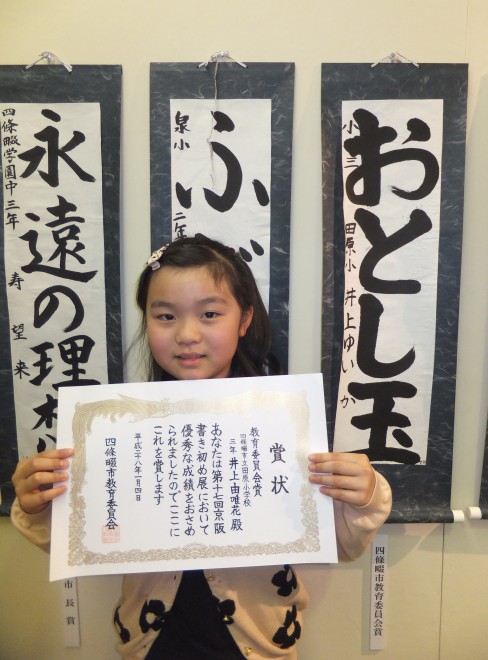 小三 田原小 井上ゆいか
おとし玉
四條畷市教育委員会賞
泉小 二年
ふ
四條畷学園中三年 寿 望来
永遠の理
市長賞
賞状
教育委員会賞
四條畷市立田原小学校
三年 井上由唯花 殿
あなたは第十七回京阪
書き初め展において
優秀な成績をおさめ
られましたのでここに
これを賞します
平成二十八年一月四日
四條畷市教育委員会